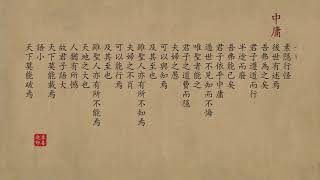 中庸
素隱行怪
後世有述焉
吾弗為之矣
君子遵道而行
半途而廢
吾弗能已矣
君子依乎中庸
遯世不見知而不悔
唯聖者能之
君子之道費而隱
夫婦之愚
可以與知焉
及其至也
雖聖人亦有所不知焉
夫婦之不肖
可以能行焉
及其至也
雖聖人亦有所不能焉
天地之大也
人猶有所憾
故君子語大
天下莫能載焉
語小
天下莫能破焉